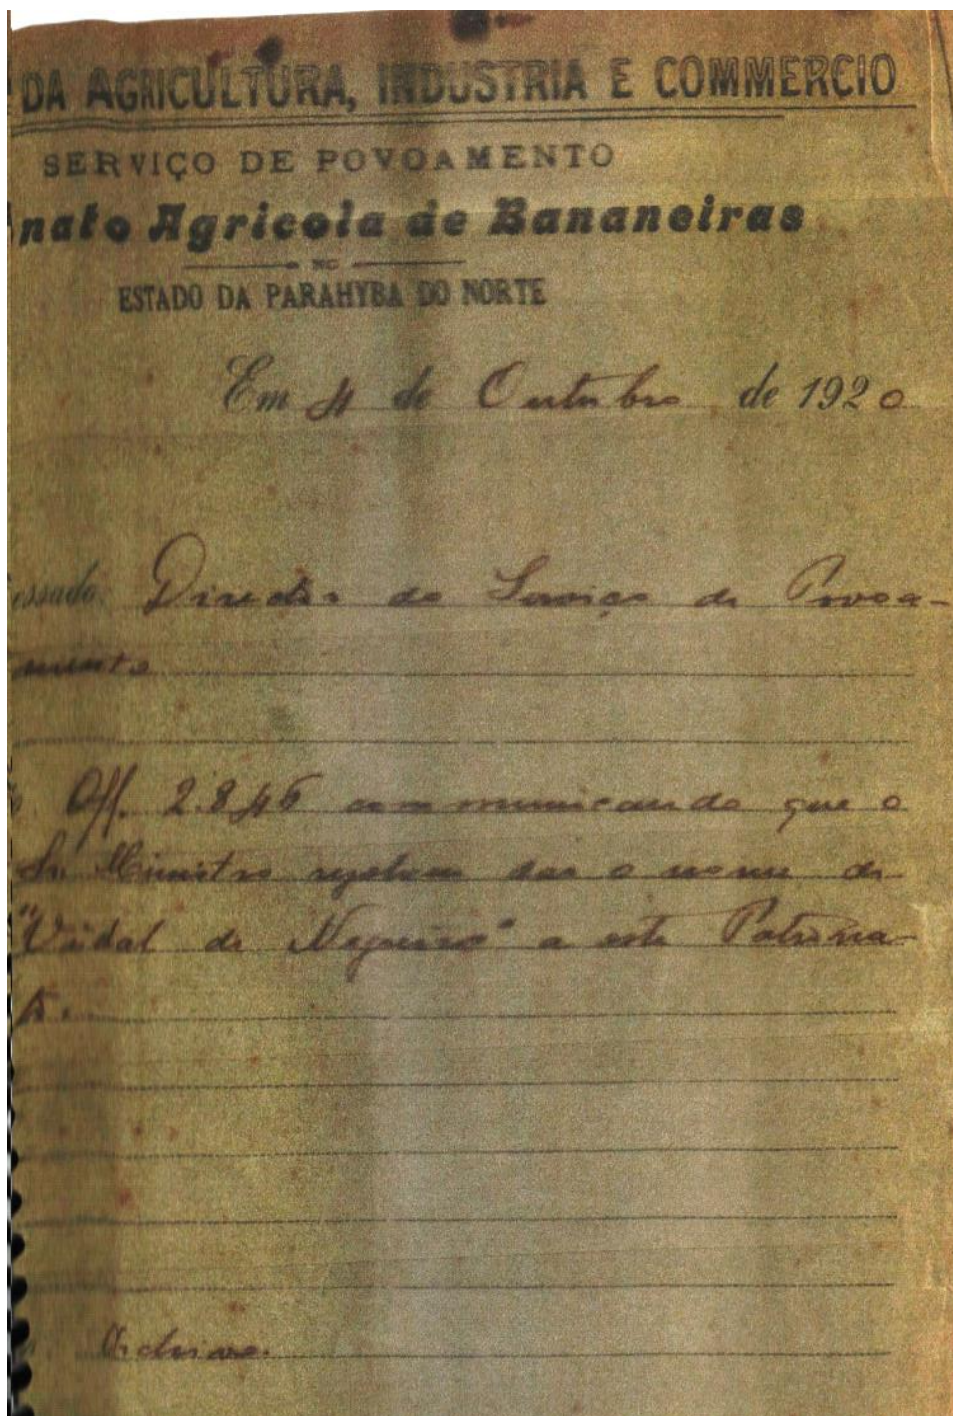 DA AGRICULTURA, INDUSTRIA E COMMERCIO
SERVIÇO DE POVOAMENTO
nato Agricola de Bananeiras
NO
ESTADO DA PARAHYBA DO NORTE
Em 4 de Outubro de 1920
essado: Director do Serviço de Povoa-
mento
Off. 2.846 communicando que o
Sr. Ministro resolveu dar o nome de
"Vidal de Negreiros" a este Patrona-
to.
Archive.